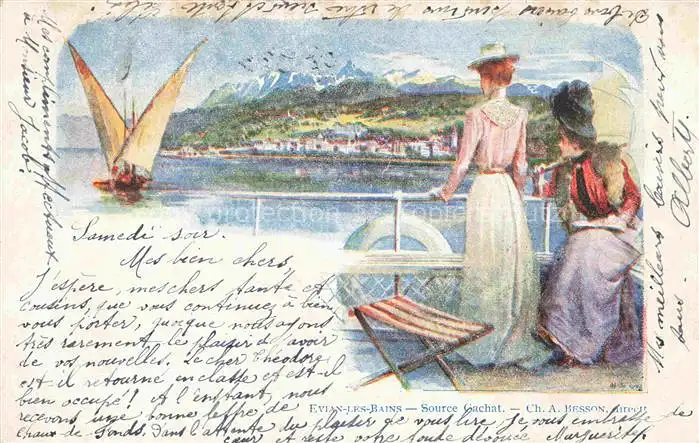 Samedi soir.
Mes bien chers,
J'espère, mes chers tante et
cousins, que vous continuez à bien
vous porter, quoique nous ayons
très rarement le plaisir d'avoir
de vos nouvelles. Le cher Théodore
est-il retourné en classe et est-il
bien occupé! A l'instant, nous
recevons une bonne lettre de
Chaux-de-Fonds. Dans l'attente du plaisir de vous lire, je vous embrasse de
cœur et reste votre toute dévouée Marguerite
EVIAN-LES-BAINS — Source Cachat. — Ch. A. BESSON, direct.
Mes compliments affectueux
à Monsieur Jacob.
Mes meilleurs baisers pour vous
tous. Albert.
De bons baisers